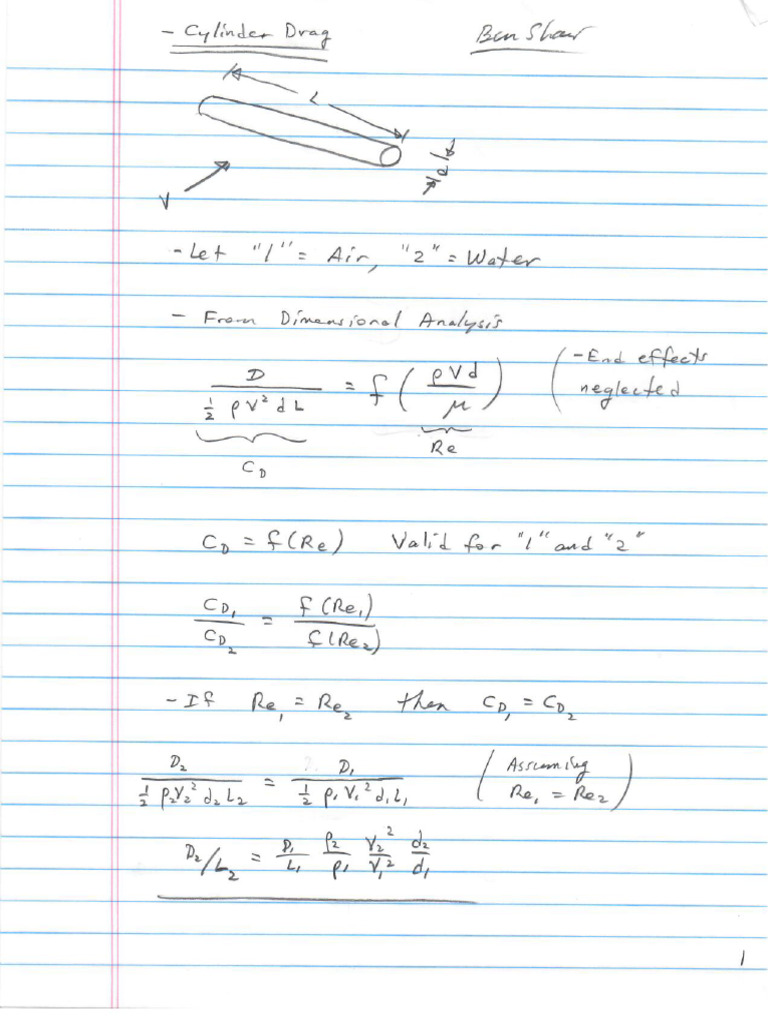 - Cylinder Drag
Ben Shaw
L
d
V
- Let "1" = Air, "2" = Water
- From Dimensional Analysis
D / (½ ρV² d L) = f ( ρVd / μ ) ( - End effects neglected
C_D
Re
C_D = f(Re) Valid for "1" and "2"
C_D₁ / C_D₂ = f(Re₁) / f(Re₂)
- If Re₁ = Re₂ then C_D₁ = C_D₂
D₂ / (½ ρ₂V₂² d₂ L₂) = D₁ / (½ ρ₁ V₁² d₁ L₁) ( Assuming Re₁ = Re₂ )
D₂/L₂ = D₁/L₁ ρ₂/ρ₁ V₂²/V₁² d₂/d₁
1